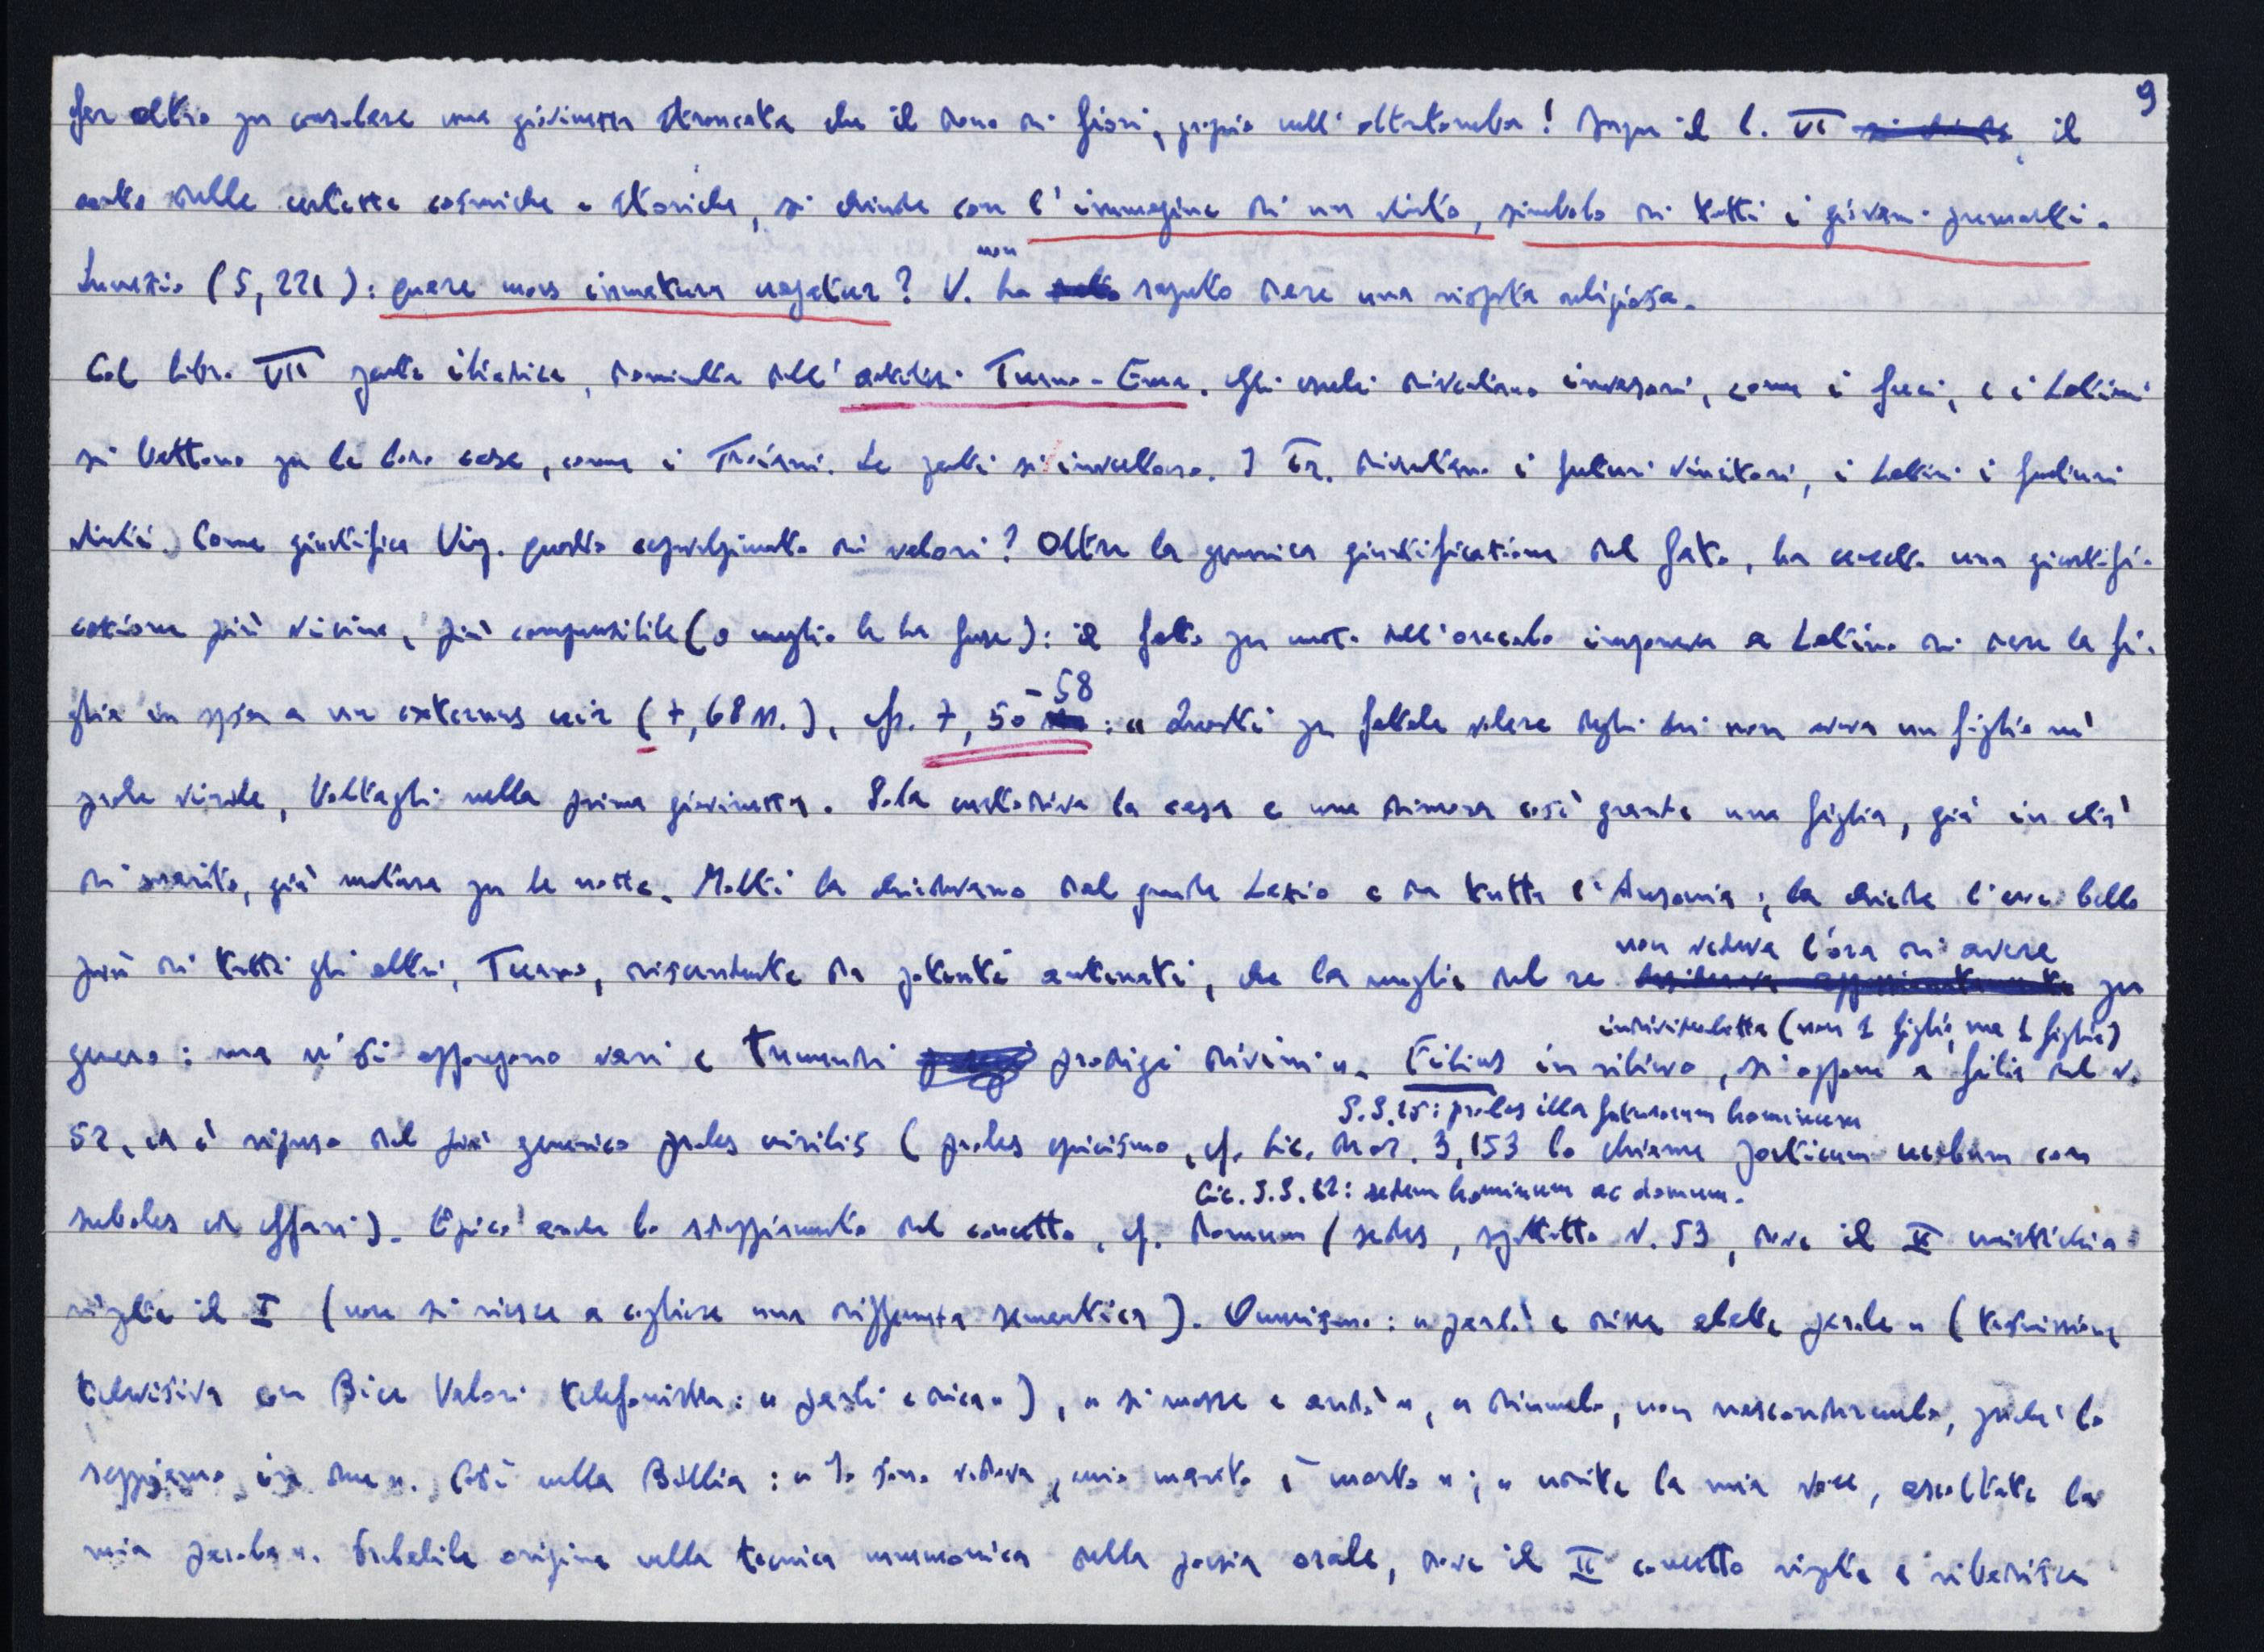 9
far altro per consolare una giovinezza stroncata che il dono di fiori, proprio nell'oltretomba! Dopo il l. VI si chiude, il
canto delle certezze cosmiche e storiche, si chiude con l'immagine di un vinto, simbolo di tutti i giovani premorti.
Lucrezio (5, 221): quare mors inmatura vagatur? V. non ha sapto saputo dare una risposta religiosa.
Col libro VII parte iliadica, dominata dall'antitesi Turno-Enea. Gli esuli diventano invasori, come i Greci, e i Latini
si battono per le loro case, come i Troiani. Le parti si invertono. I Tr. diventano i futuri vincitori, i Latini i futuri
vinti. Come giustifica Virg. questo capovolgimento di valori? Oltre la generica giustificazione del fato, ha cercato una giustifi-
cazione più vicina, più comprensibile (o meglio le ha fuse): il fato per mezzo dell'oracolo imponeva a Latino di dare la fi-
glia in sposa a un externus vir (7, 68 ss.), cfr. 7, 50 -58: « Questi per fatale volere degli Dei non aveva un figlio né
prole virile, toltagli nella prima giovinezza. Sola custodiva la casa e una dimora così grande una figlia, già in età
di marito, già matura per le nozze. Molti la chiedevano dal grande Lazio e da tutta l'Ausonia; la chiede l'eroe bello
più di tutti gli altri, Turno, discendente da potenti antenati, che la moglie del re non vedeva l'ora di avere per
genero: ma vi si oppongono vari e tremendi prodigi divini ». Filius in rilievo, si oppone a filia del v.
individualità (non 1 figlio, ma 1 figlia)
52, ed è ripreso dal più generico proles virilis (proles epicismo, cf. Cic. De or. 3,153 lo chiama poeticum verbum con
S.S. 15: proles illa futurorum hominum
suboles ed effari). Epico anche lo sdoppiamento del concetto, cf. domum / sedes, soprattutto v. 53, dove il II
Cic. S.S. 82: sedem hominum ac domum.
riglia il I (non si riesce a cogliere una differenza semantica). Omerismo: « parlò e disse alate parole » (trasmissione
televisiva con Bice Valori telefonista: « parli e dica »), « si mosse e andò », « diciamolo, non nascondiamolo, perché lo
sappiamo in due ». Così nella Bibbia: « Io sono vedova, mio marito è morto »; « udite la mia voce, ascoltate la
mia parola ». Probabile origine nella tecnica mnemonica della poesia orale, dove il II concetto ripiglia e ribadisce